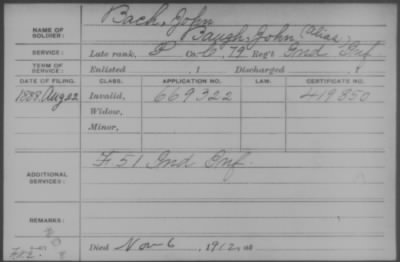 NAME OF SOLDIER: Bach, John
Baugh, John (alias)
SERVICE: Late rank, P Co. C, 79 Reg't Ind Inf.
TERM OF SERVICE: Enlisted , 1 Discharged , 1
DATE OF FILING. CLASS. APPLICATION NO. LAW. CERTIFICATE NO.
1888 Aug 22 Invalid, 669322 419850
Widow,
Minor,
ADDITIONAL SERVICES: F 51 Ind Inf.
REMARKS:
Died Nov 6, 1912, at